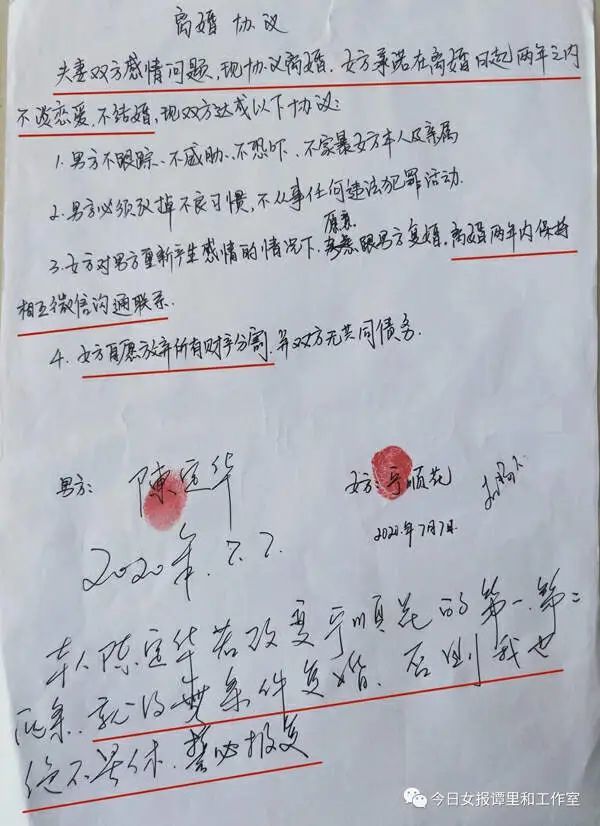 离婚 协议
夫妻双方感情问题，现协议离婚。女方承诺在离婚日起两年之内
不谈恋爱，不结婚，现双方达成以下协议：
1. 男方不跟踪、不威胁、不恐吓、不家暴女方本人及亲属
2. 男方必须改掉不良习惯，不从事任何违法犯罪活动.
3. 女方对男方重新产生感情的情况下，愿意跟男方复婚，离婚两年内保持
相互微信沟通联系.
4. 女方自愿放弃所有财产分割，并双方无共同债务.
男方： 陳定华
女方：宁顺花
2020年.7.7.
2020年7月7日
本人陈定华若改变宁顺花的第一.第二
就得無条件复婚，否则我也
绝不罢休，誓必报复
今日女报谭里和工作室